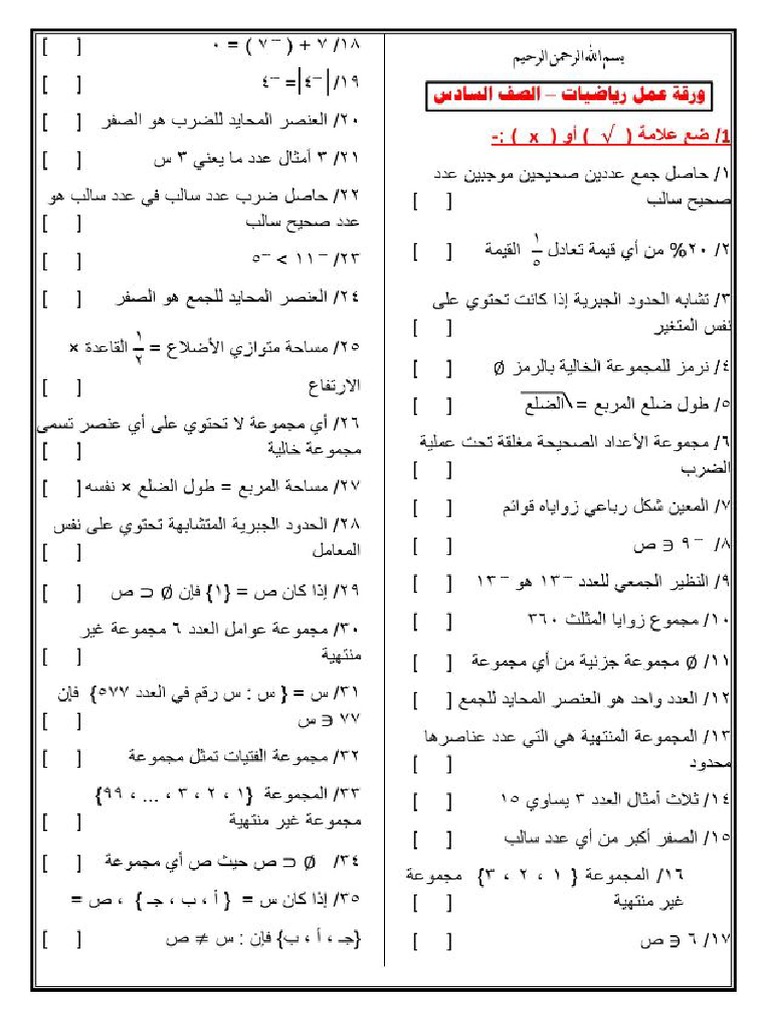 بسم الله الرحمن الرحيم
ورقة عمل رياضيات – الصف السادس
1/ ضع علامة ( √ ) أو ( x ) :-
١/ حاصل جمع عددين صحيحين موجبين عدد
صحيح سالب [ ]
٢/ ٢٠% من أي قيمة تعادل ١/٥ القيمة [ ]
٣/ تشابه الحدود الجبرية إذا كانت تحتوي على
نفس المتغير [ ]
٤/ نرمز للمجموعة الخالية بالرمز Ø [ ]
٥/ طول ضلع المربع = √الضلع [ ]
٦/ مجموعة الأعداد الصحيحة مغلقة تحت عملية
الضرب [ ]
٧/ المعين شكل رباعي زواياه قوائم [ ]
٨/ ⁻٩ ∋ ص [ ]
٩/ النظير الجمعي للعدد ⁻١٣ هو ⁻١٣ [ ]
١٠/ مجموع زوايا المثلث ٣٦٠ [ ]
١١/ Ø مجموعة جزئية من أي مجموعة [ ]
١٢/ العدد واحد هو العنصر المحايد للجمع [ ]
١٣/ المجموعة المنتهية هي التي عدد عناصرها
محدود [ ]
١٤/ ثلاث أمثال العدد ٣ يساوي ١٥ [ ]
١٥/ الصفر أكبر من أي عدد سالب [ ]
١٦/ المجموعة { ١ ، ٢ ، ٣} مجموعة
غير منتهية [ ]
١٧/ ٦ ∋ ص [ ]
١٨/ ٧ + ( ⁻٧ ) = ٠ [ ]
١٩/ |⁻٤| = ⁻٤ [ ]
٢٠/ العنصر المحايد للضرب هو الصفر [ ]
٢١/ ٣ أمثال عدد ما يعني ٣ س [ ]
٢٢/ حاصل ضرب عدد سالب في عدد سالب هو
عدد صحيح سالب [ ]
٢٣/ ⁻١١ > ⁻٥ [ ]
٢٤/ العنصر المحايد للجمع هو الصفر [ ]
٢٥/ مساحة متوازي الأضلاع = ١/٢ القاعدة ×
الارتفاع [ ]
٢٦/ أي مجموعة لا تحتوي على أي عنصر تسمى
مجموعة خالية [ ]
٢٧/ مساحة المربع = طول الضلع × نفسه [ ]
٢٨/ الحدود الجبرية المتشابهة تحتوي على نفس
المعامل [ ]
٢٩/ إذا كان ص = {١} فإن Ø ⊃ ص [ ]
٣٠/ مجموعة عوامل العدد ٦ مجموعة غير
منتهية [ ]
٣١/ س = { س : س رقم في العدد ٥٧٧} فإن
٧٧ ∋ س [ ]
٣٢/ مجموعة الفتيات تمثل مجموعة [ ]
٣٣/ المجموعة {١ ، ٢ ، ٣ ، ... ، ٩٩}
مجموعة غير منتهية [ ]
٣٤/ Ø ⊃ ص حيث ص أي مجموعة [ ]
٣٥/ إذا كان س = { أ ، ب ، جـ } ، ص =
{جـ ، أ ، ب} فإن : س ≠ ص [ ]